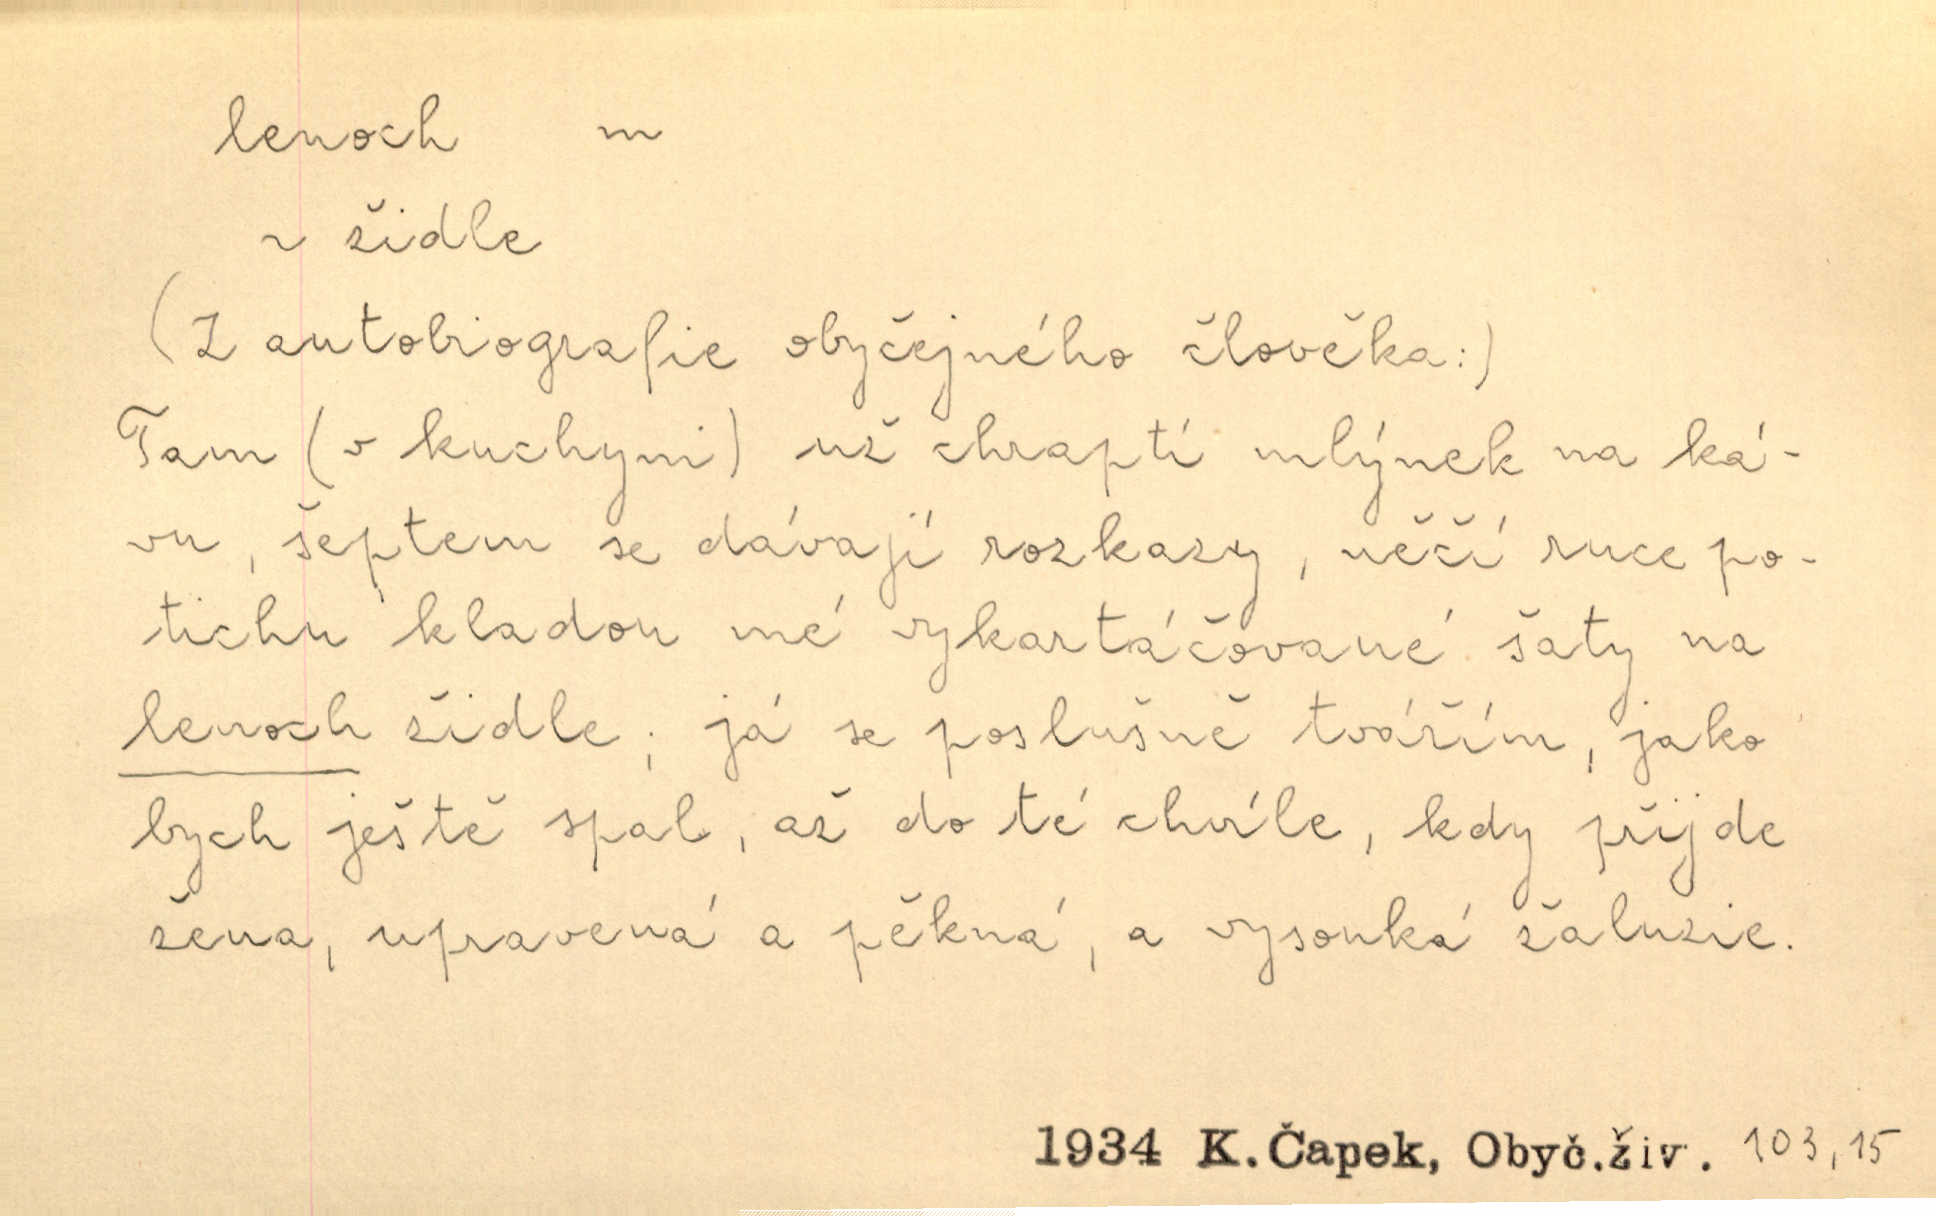 lenoch m
~ židle
(Z autobiografie obyčejného člověka:)
Tam (v kuchyni) už chraptí mlýnek na ká-
vu, šeptem se dávají rozkazy, něčí ruce po-
tichu kladou mé vykartáčované šaty na
lenoch židle; já se poslušně tvářím, jako
bych ještě spal, až do té chvíle, kdy přijde
žena, upravená a pěkná, a vysouká žaluzie.
1934 K. Čapek, Obyč.živ. 103,15